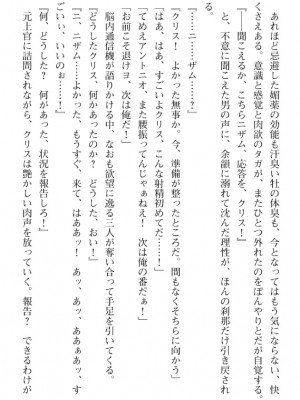 あれほど忌避した媚薬の効能も汗臭い牡の体臭も、今となってはもう気にならない、快
くさえある。意識と感覚と肉欲のタガが、またひとつ外れたのをぼんやりとだが自覚する。
『――聞こえるか、こちらニザム、応答を、クリス！』
　と、不意に聞こえた男の声に、余韻に溺れて沈んだ理性が、ほんの刹那だけ引き戻され
る。
「……ニ……ザム……？」
『クリス！　よかった無事か。今、準備が整ったところだ。間もなくそちらに向かう』
「はぁ、はぁ、すごいよクリス。こんな射精初めてだ……！」
「てめえアントニオ、また腰振ってんじゃねぇ！　次は俺の番だぁ！」
「お前こそ退けヨ、次は俺だ！」
　脳内通信機が語りかける中、なおも欲望に逸る三人が奪い合って手足を引いてくる。
『どうしたクリス、何かあったのか？　どうした、おい！』
「ニ、ニザム……よかった、もうすぐ、来て、はああッ！　あッ、あッ、ああぁあッ、す
ごいぃ、いいのぉ……！」
『何、どうした？　何があった、状況を報告しろ！』
　元上官に詰問されながら、クリスは艶かしい肉声を放っていく。報告？　できるわけが